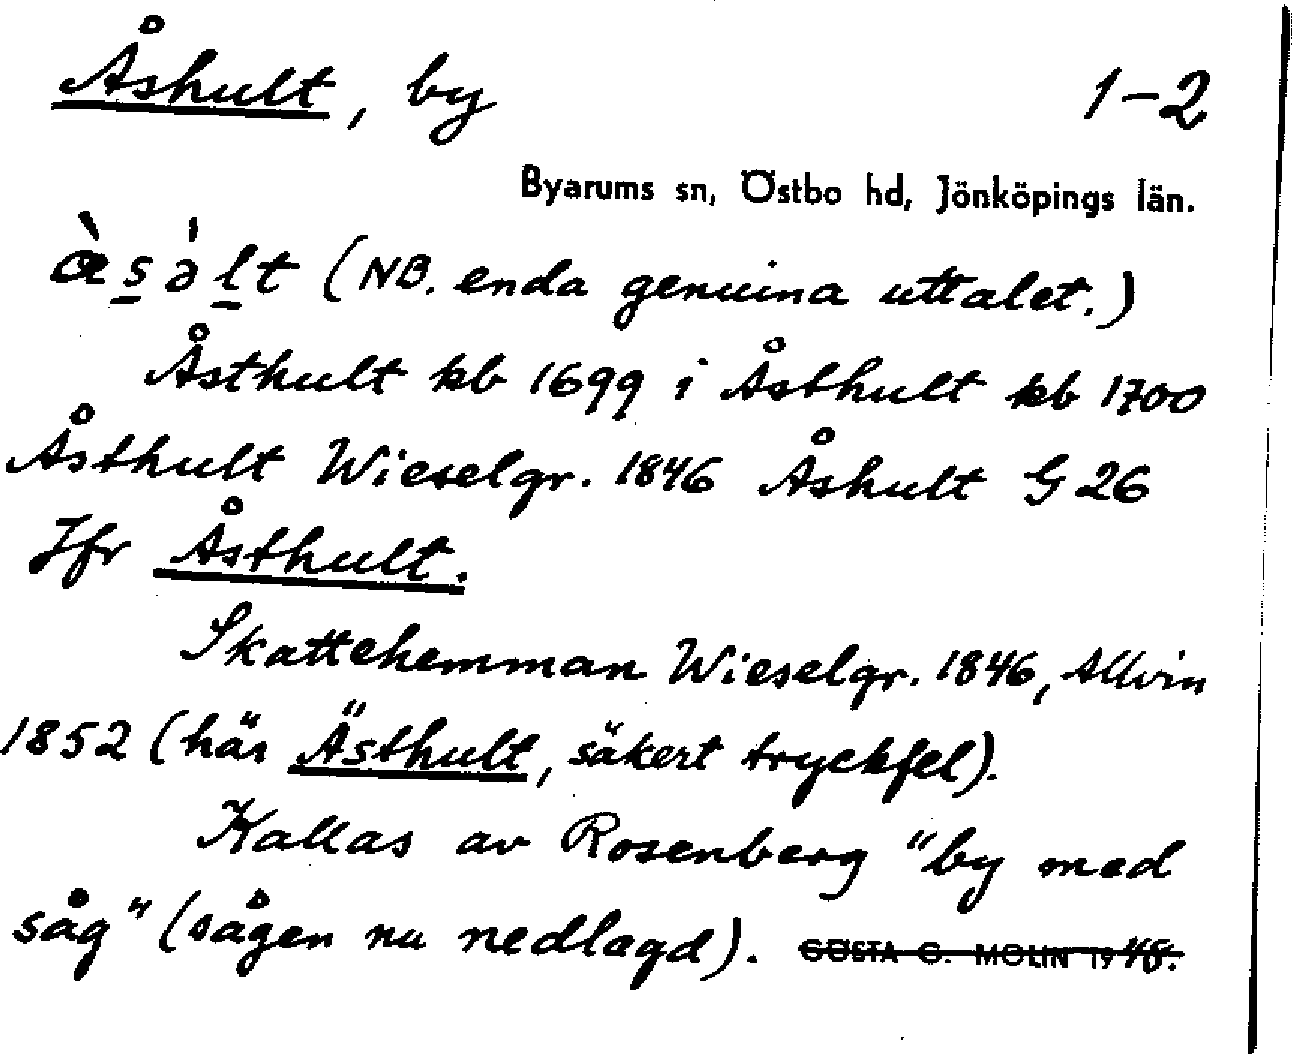 Åshult, by 1-2
Byarums sn, Östbo hd, Jönköpings län.
(NB. enda genuina uttalet.)
Åsthult kb 1699 i Åsthult kb 1700
Åsthult Wieselgr. 1846 Åshult G 26
Jfr Åsthult.
Skattehemman Wieselgr. 1846, Allvin
1852 (här Ästhult, säkert tryckfel).
Kallas av Rosenberg "by med
såg" (sågen nu nedlagd). GÖSTA G. MOLIN 19